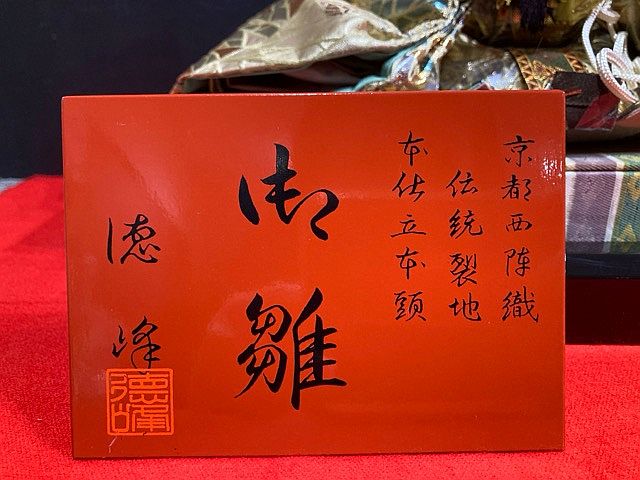 京都西陣織
伝統裂地
本仕立本頭
御雛
徳峰
德峰